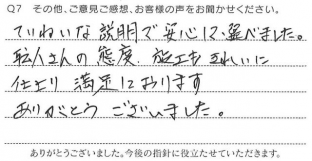 Q7 その他、ご意見ご感想、お客様の声をお聞かせください。
ていねいな説明で安心して選べました。
職人さんの態度、施工もきれいに
仕上り満足しております
ありがとうございました。
ありがとうございました。今後の指針に役立たせていただきます。